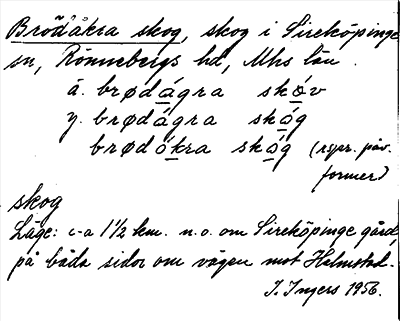 Brödåkra skog, skog i Sireköpinge
sn, Rönnebergs hd, Mhs län.
ä. brødágra skóv
y. brødágra skóg
brødókra skóg (rspr. påv.
former)
skog
Läge: c-a 1½ km. n.o. om Sireköpinge gård,
på båda sidor om vägen mot Halmstad.
I. Ingers 1956.